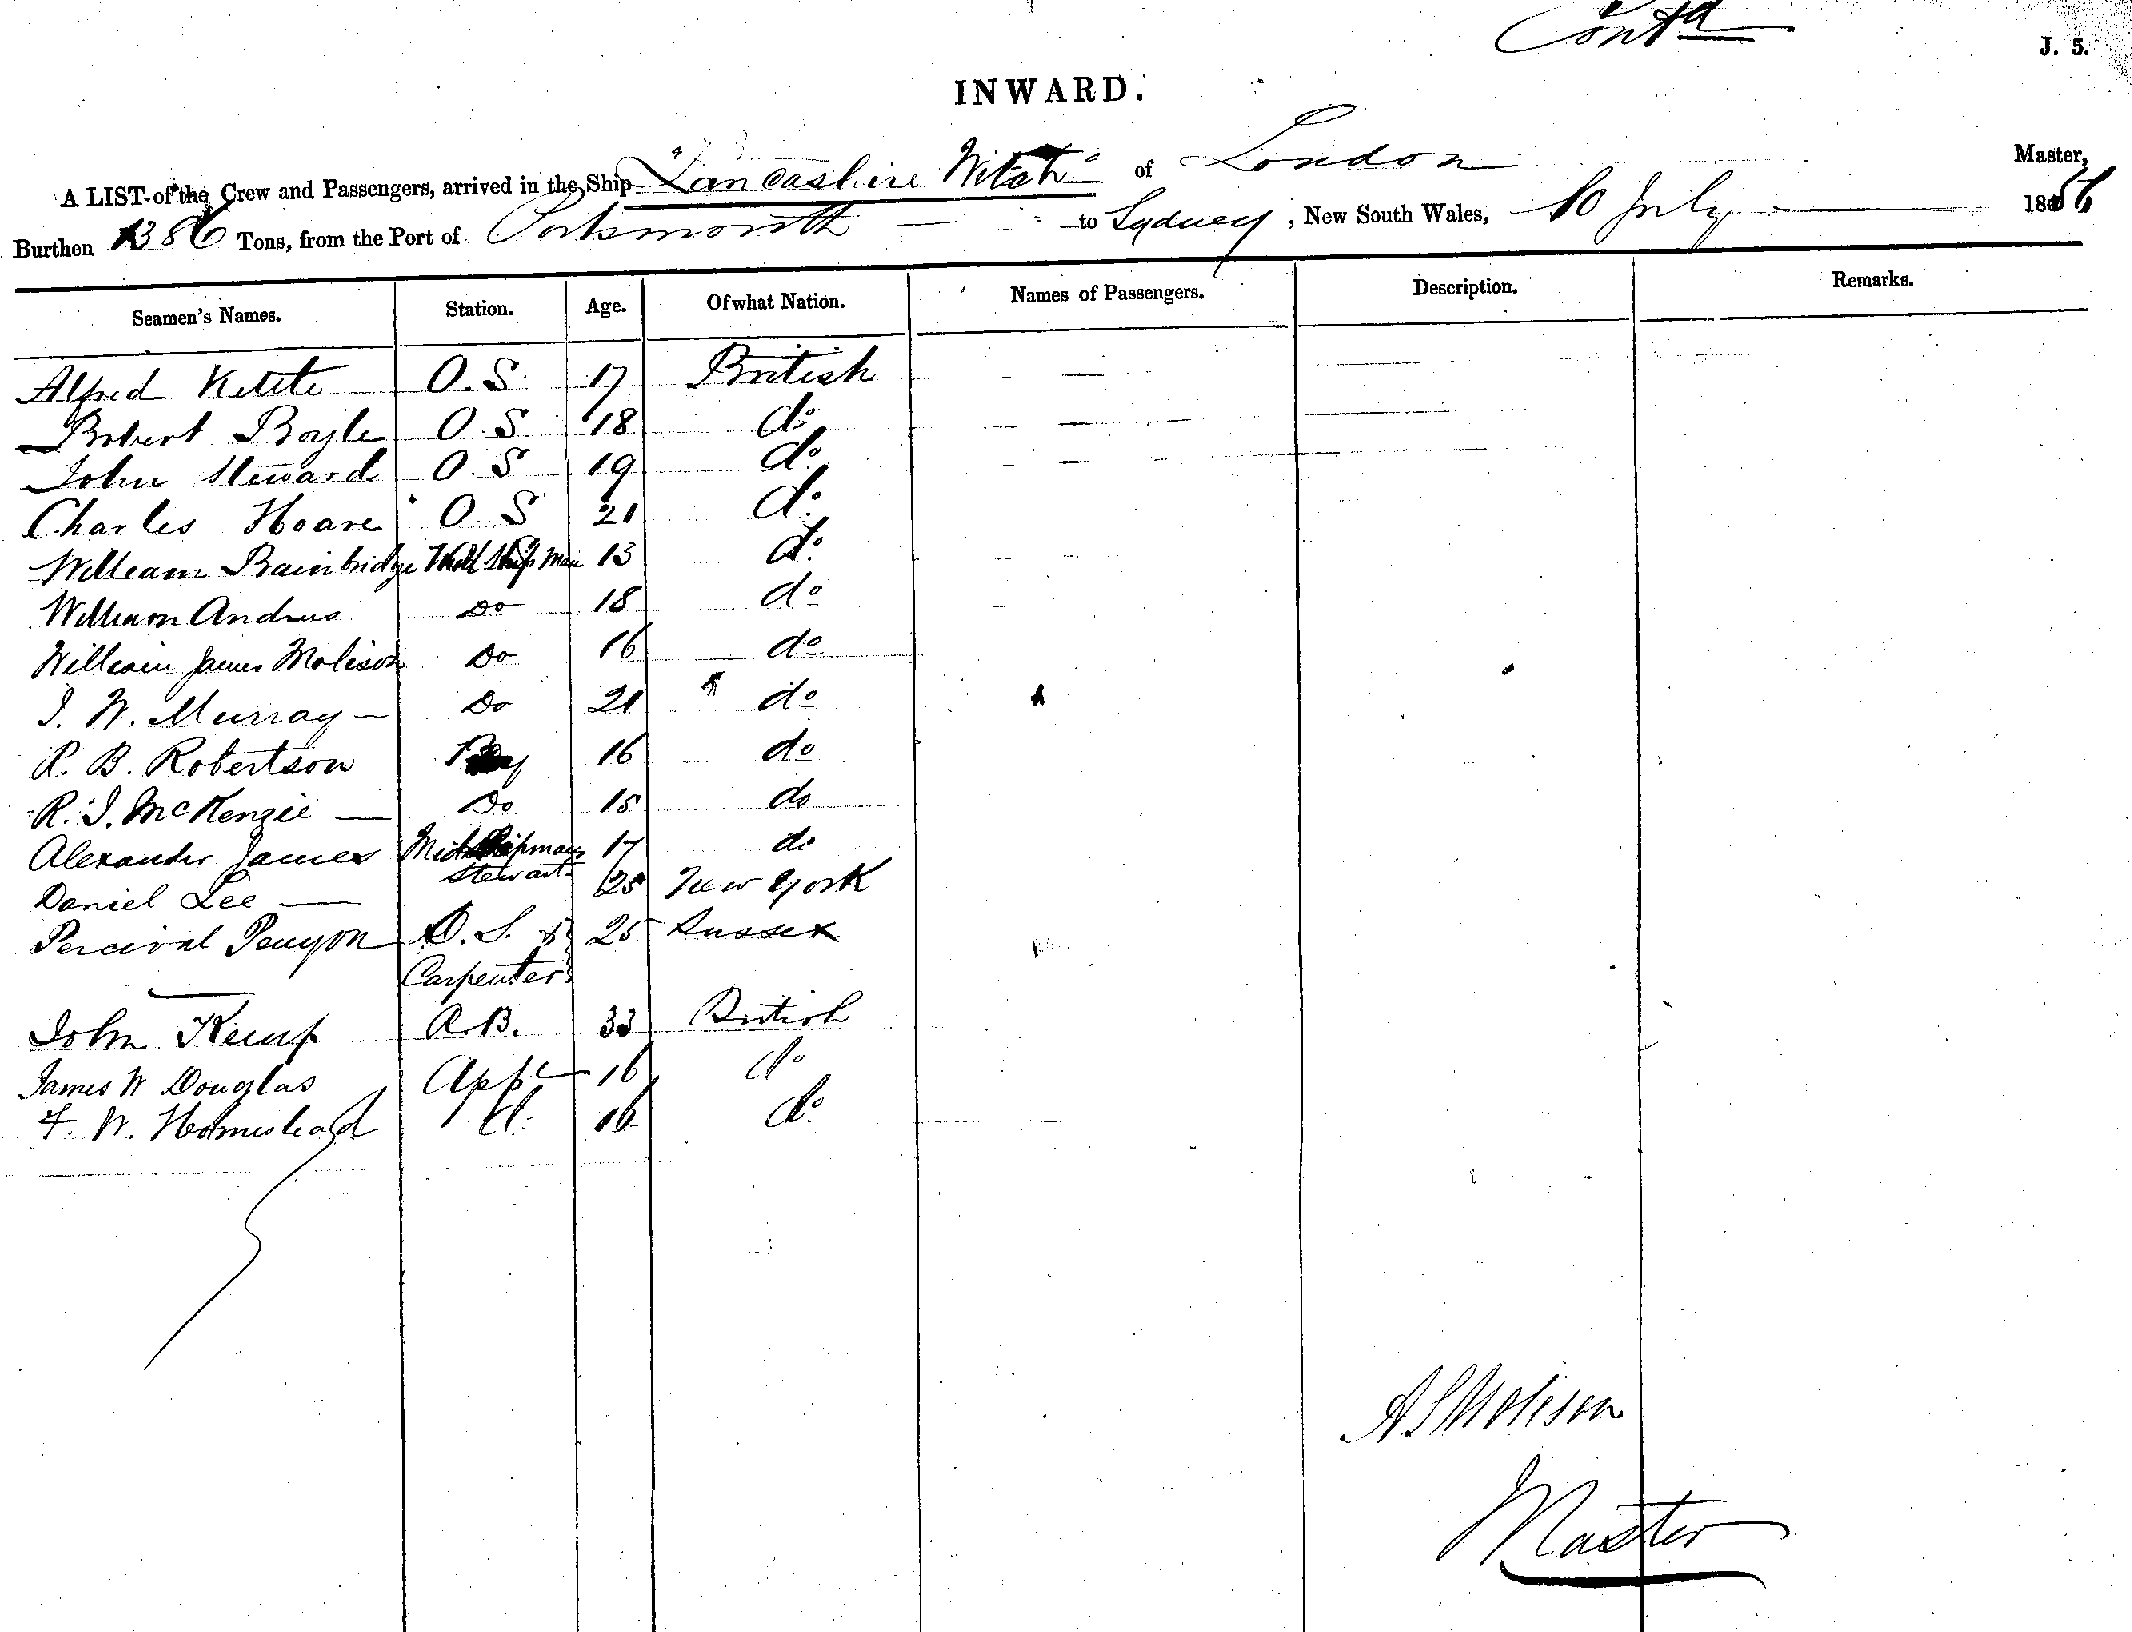 Contd
J. 5.
INWARD.
A LIST of the Crew and Passengers, arrived in the Ship "Lancashire Witch" of London Master,
Burthen 1386 Tons, from the Port of Portsmouth to Sydney, New South Wales, 10 July 1856
Seamen's Names. Station. Age. Of what Nation. Names of Passengers. Description. Remarks.
Alfred O. S. 17 British
Robert Boyle O. S 18 do
John Steward O S 19 do
Charles Hoare O S 21 do
William Bainbridge Mid Ship Man 13 do
William Andrus Do 18 do
William James Molison Do 16 do
J. W. Murray Do 21 do
R. B. Robertson Boy 16 do
R. J. McKenzie Do 15 do
Alexander James Midshipman 17 do
Daniel Lee Stewart 25 New York
Percival Penyon O. S. & 25 Sussex
Carpenter
John Kemp A.B. 33 British
James W Douglas App 16 do
F. W. Holmstead d. 16 do
A S Molison
Master